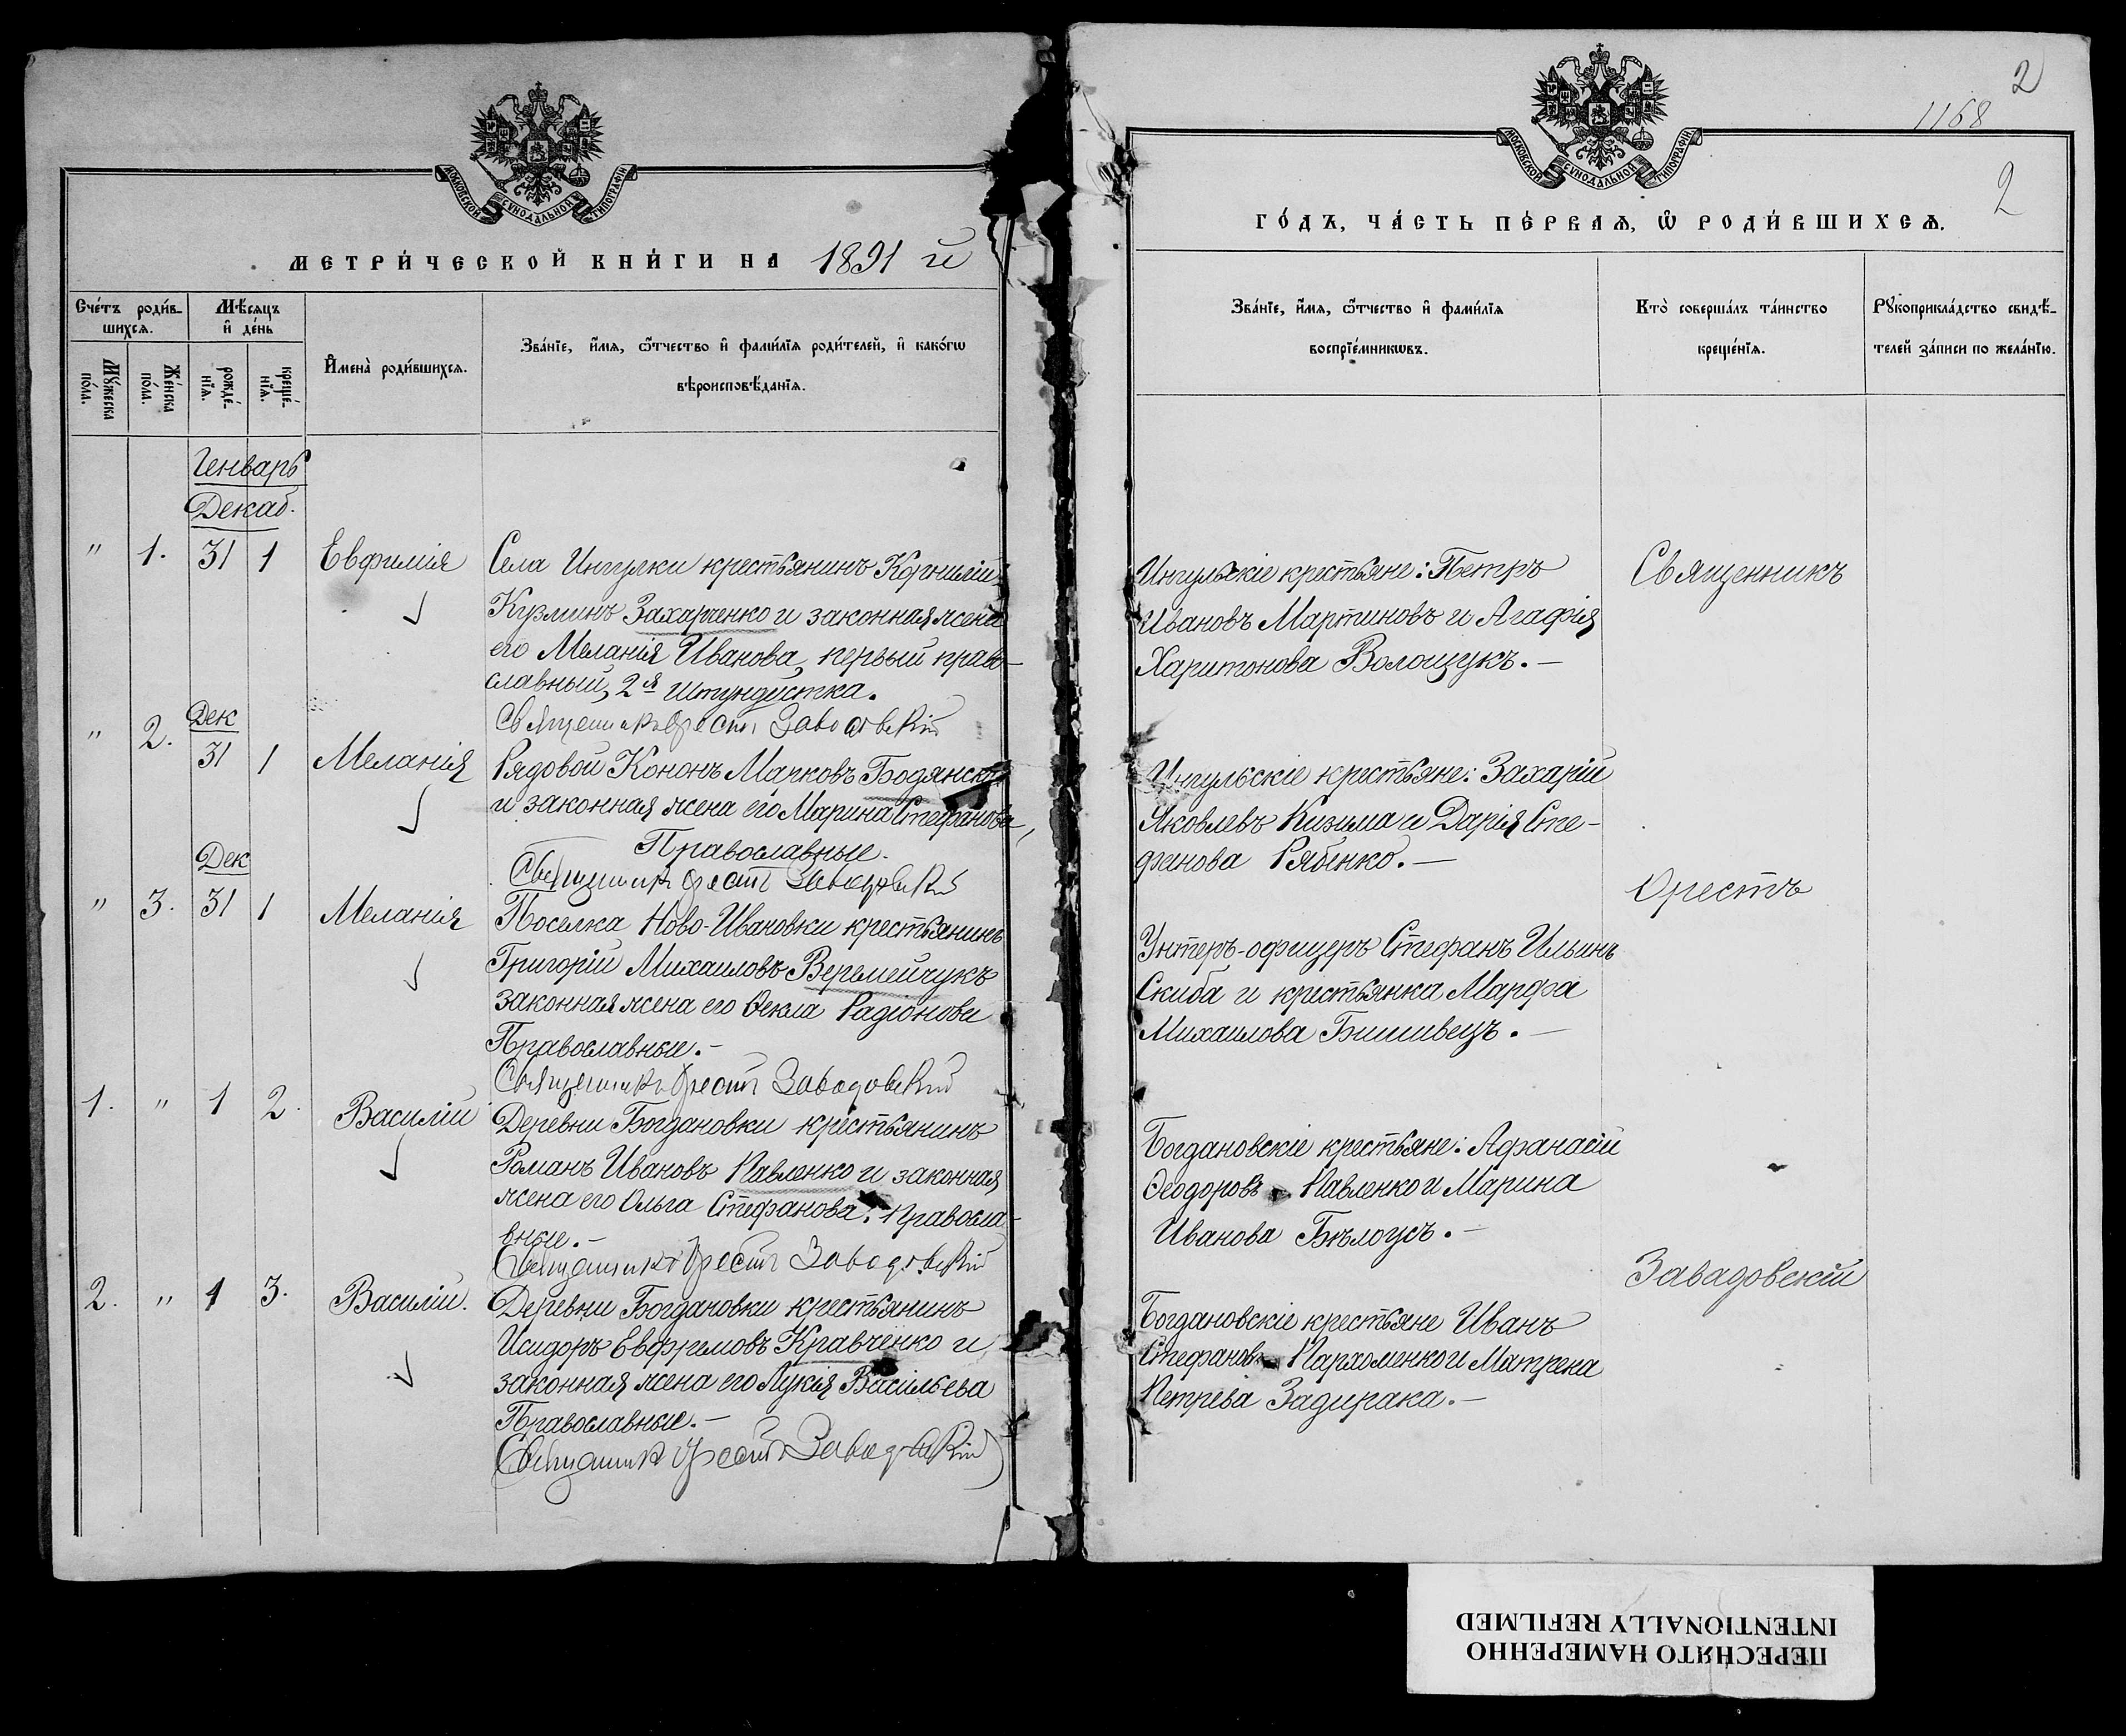 МОСКОВСКОЙ СУНОДАЛЬНОЙ ТИПОГРАФІИ
МЕТРИ́ЧЕСКОЙ КНИ́ГИ НА 1891 й
Сче́тъ роди́в-
шихсѧ.
Мѣ́сѧцъ
и҆ де́нь
Мꙋ́жеска
по́ла.
Же́нска
по́ла.
рожде́-
нїѧ.
креще́-
нїѧ.
И҆мена̀ роди́вшихсѧ.
Зва́нїе, и҆́мѧ, ѻ҆́тчество и҆ фами́лїѧ роди́телей, и҆ како́гѡ
вѣроисповѣ́данїѧ.
Генварь
Декаб.
" 1. 31 1 Евфимія
Села Ингулки крестьянинъ Корнилій
Кузминъ Захарченко и законная жена
его Меланія Иванова, первый право-
славный, 2я штундистка.
Священникъ Орестъ Завадовскій
Дек
" 2. 31 1 Меланія
Рядовой Кононъ Марковъ Бодянскій
и законная жена его Марина Стефанова,
Православные.
Священникъ Орестъ Завадовскій
Дек
" 3. 31 1 Меланія
Поселка Ново-Ивановки крестьянинъ
Григорій Михаиловъ Веремейчукъ
законная жена его Ѳекла Радіонова
Православные.-
Священникъ Орестъ Завадовскій
1. " 1 2. Василій
Деревни Богдановки крестьянинъ
Романъ Ивановъ Павленко и законная
жена его Ольга Стефанова. Правосла-
вные.-
Священникъ Орестъ Завадовскій
2. " 1 3. Василій.
Деревни Богдановки крестьянинъ
Исидоръ Евфремовъ Кравченко и
законная жена его Лукія Васильева
Православные.-
Священникъ Орестъ Завадовскій
2
1168
2
МОСКОВСКОЙ СУНОДАЛЬНОЙ ТИПОГРАФІИ
ГО́ДЪ, ЧА́СТЬ ПЕ́РВАѦ, Ѡ҆ РОДИ́ВШИХСѦ.
Зва́нїе, и҆́мѧ, ѻ҆́тчество и҆ фами́лїѧ
воспрїе́мникѡвъ.
Кто̀ соверша́лъ та́инство
креще́нїѧ.
Рꙋкоприкла́дство свидѣ́-
телей за́писи по жела́нїю.
Ингульскіе крестьяне: Петръ
Ивановъ Мартиновъ и Агафія
Харитонова Волощукъ.-
Священникъ
Ингульскіе крестьяне: Захарій
Яковлевъ Кизима и Дарія Сте-
фанова Рябенко.-
Орестъ
Унтеръ-офицеръ Стефанъ Ильинъ
Скиба и крестьянка Марфа
Михаилова Бишивецъ.-
Богдановскіе крестьяне: Афанасій
Ѳеодоровъ Павленко и Марина
Иванова Бѣлоусъ.-
Завадовскій
Богдановскіе крестьяне Иванъ
Стефановъ Пархоменко и Матрена
Петрева Задирака.-
ПЕРЕСНЯТО НАМЕРЕННО
INTENTIONALLY REFILMED